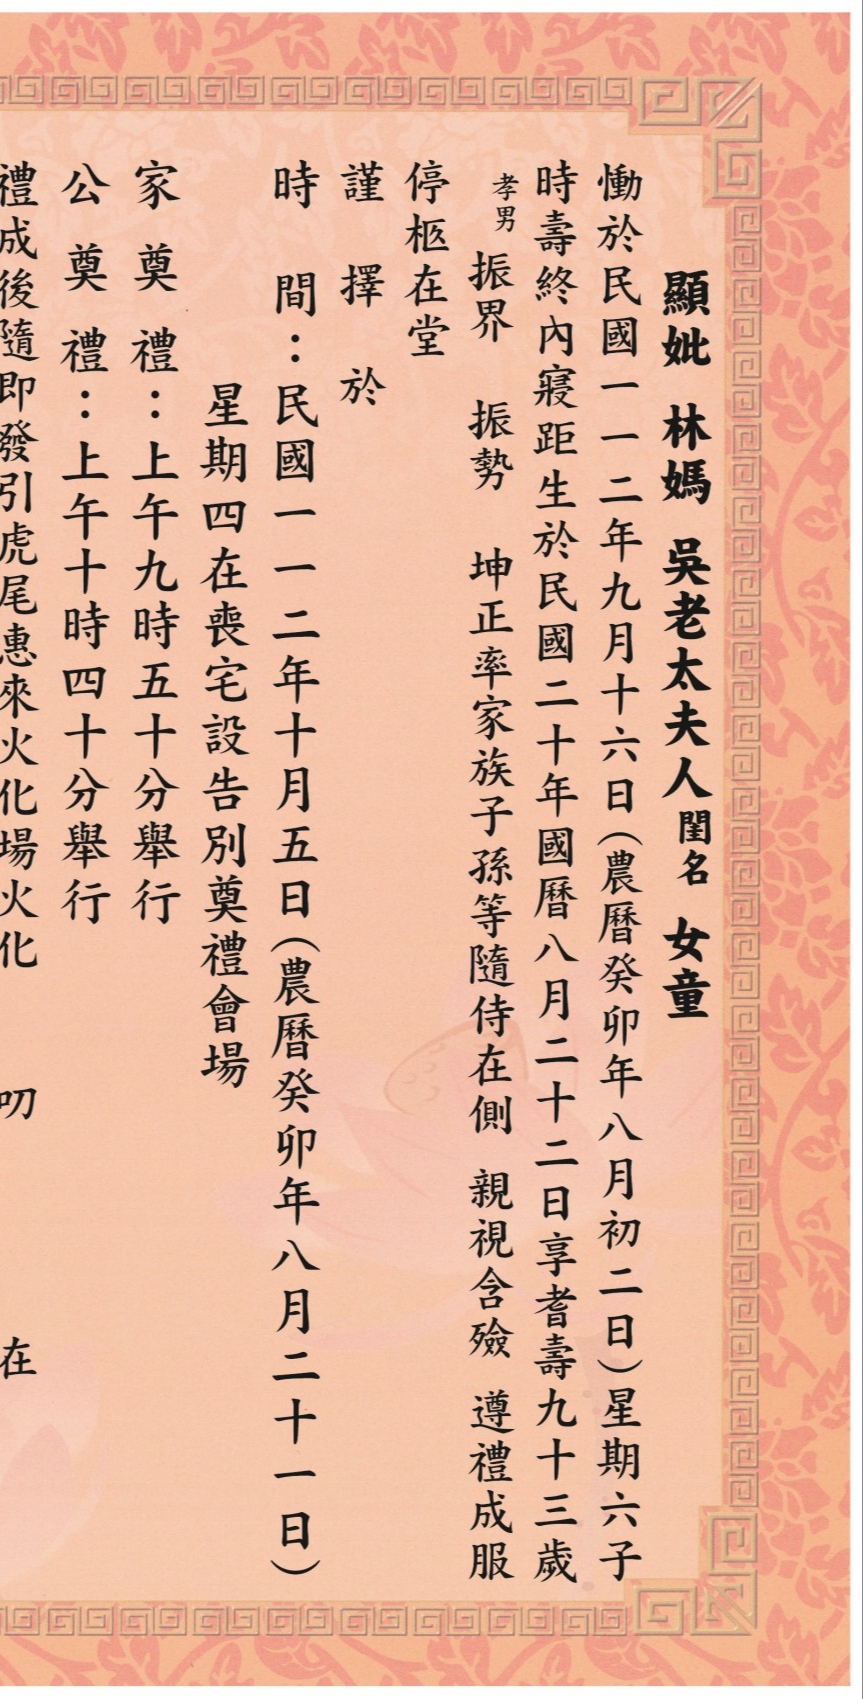 顯妣 林媽 吳老太夫人 閨名 女童
慟於民國一一二年九月十六日(農曆癸卯年八月初二日)星期六子
時壽終內寢距生於民國二十年國曆八月二十二日享耆壽九十三歲
孝男 振界 振勢 坤正率家族子孫等隨侍在側 親視含殮 遵禮成服
停柩在堂
謹擇於
時間：民國一一二年十月五日(農曆癸卯年八月二十一日)
星期四在喪宅設告別奠禮會場
家奠禮：上午九時五十分舉行
公奠禮：上午十時四十分舉行
禮成後隨即發引虎尾惠來火化場火化 叨 在